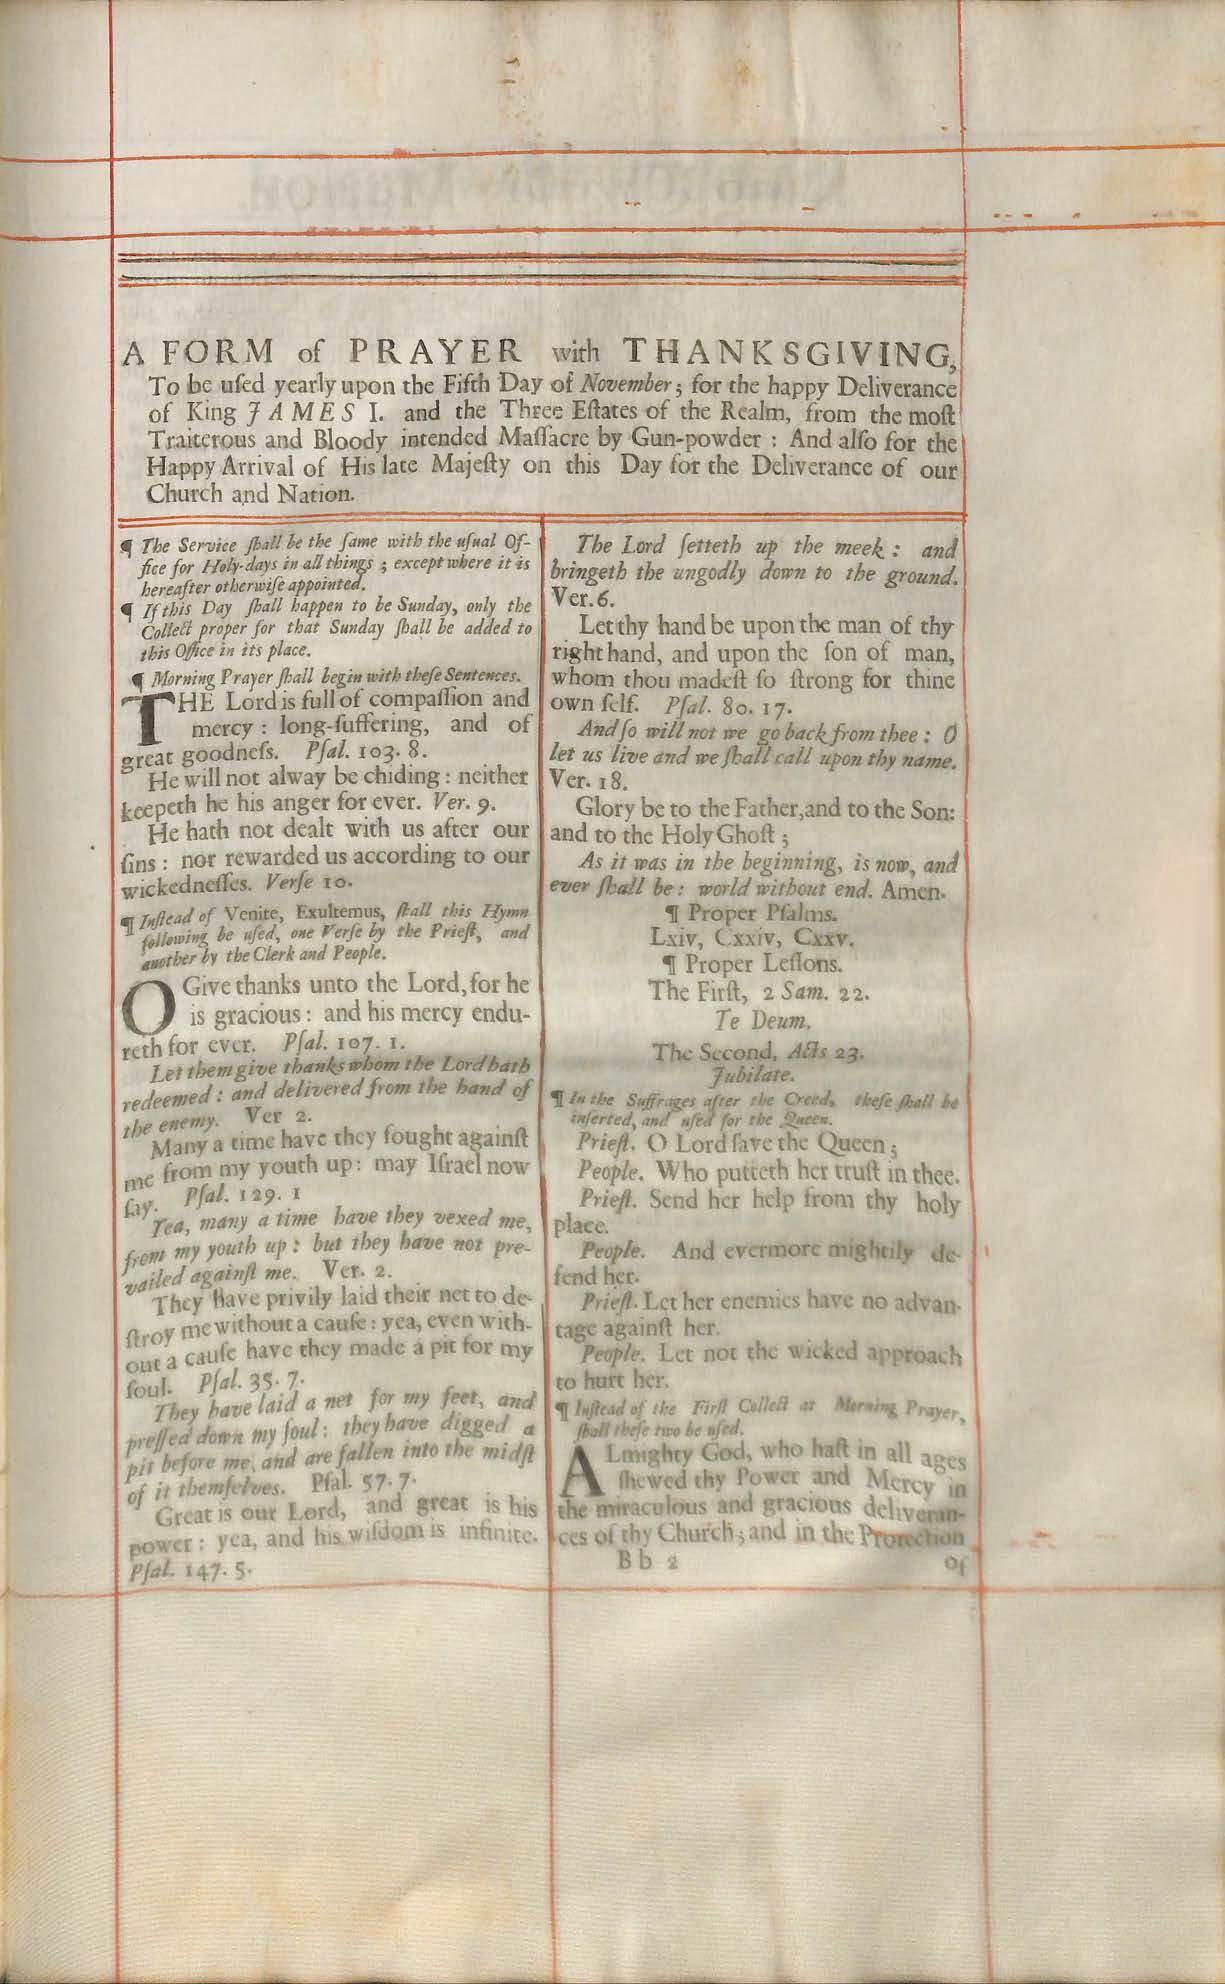 A FORM of PRAYER with THANKSGIVING,
To be uſed yearly upon the Fifth Day of November; for the happy Deliverance
of King JAMES I. and the Three Eſtates of the Realm, from the moſt
Traiterous and Bloody intended Maſſacre by Gun-powder : And alſo for the
Happy Arrival of His late Majeſty on this Day for the Deliverance of our
Church and Nation.
¶ The Service ſhall be the ſame with the uſual Of-
fice for Holy-days in all things ; except where it is
hereafter otherwiſe appointed.
¶ If this Day ſhall happen to be Sunday, only the
Collect proper for that Sunday ſhall be added to
this Office in its place.
¶ Morning Prayer ſhall begin with theſe Sentences.
THE Lord is full of compaſſion and
mercy : long-ſuffering, and of
great goodneſs. Pſal. 103. 8.
He will not alway be chiding : neither
keepeth he his anger for ever. Ver. 9.
He hath not dealt with us after our
ſins : nor rewarded us according to our
wickedneſſes. Verſe 10.
¶ Inſtead of Venite, Exultemus, ſhall this Hymn
following be uſed, one Verſe by the Prieſt, and
another by the Clerk and People.
O Give thanks unto the Lord, for he
is gracious : and his mercy endu-
reth for ever. Pſal. 107. 1.
Let them give thanks whom the Lord hath
redeemed : and delivered from the hand of
the enemy. Ver 2.
Many a time have they fought againſt
me from my youth up : may Iſrael now
ſay. Pſal. 129. 1
Yea, many a time have they vexed me,
from my youth up : but they have not pre-
vailed againſt me. Ver. 2.
They have privily laid their net to de-
ſtroy me without a cauſe : yea, even with-
out a cauſe have they made a pit for my
ſoul. Pſal. 35. 7.
They have laid a net for my feet, and
preſſed down my ſoul : they have digged a
pit before me, and are fallen into the midſt
of it themſelves. Pſal. 57. 7.
Great is our Lord, and great is his
power : yea, and his wiſdom is infinite.
Pſal. 147. 5.
The Lord ſetteth up the meek : and
bringeth the ungodly down to the ground.
Ver. 6.
Let thy hand be upon the man of thy
right hand, and upon the ſon of man,
whom thou madeſt ſo ſtrong for thine
own ſelf. Pſal. 80. 17.
And ſo will not we go back from thee : O
let us live and we ſhall call upon thy name.
Ver. 18.
Glory be to the Father, and to the Son:
and to the Holy Ghoſt ;
As it was in the beginning, is now, and
ever ſhall be : world without end. Amen.
¶ Proper Pſalms.
Lxiv, Cxxiv, Cxxv.
¶ Proper Leſſons.
The Firſt, 2 Sam. 22.
Te Deum.
The Second, Acts 23.
Jubilate.
¶ In the Suffrages after the Creed, theſe ſhall be
inſerted, and uſed for the Queen.
Prieſt. O Lord ſave the Queen ;
People. Who putteth her truſt in thee.
Prieſt. Send her help from thy holy
place.
People. And evermore mightily de-
fend her.
Prieſt. Let her enemies have no advan-
tage againſt her.
People. Let not the wicked approach
to hurt her.
¶ Inſtead of the Firſt Collect at Morning Prayer,
ſhall theſe two be uſed.
ALmighty God, who haſt in all ages
ſhewed thy Power and Mercy in
the miraculous and gracious deliveran-
ces of thy Church ; and in the Protection
Bb 2 of